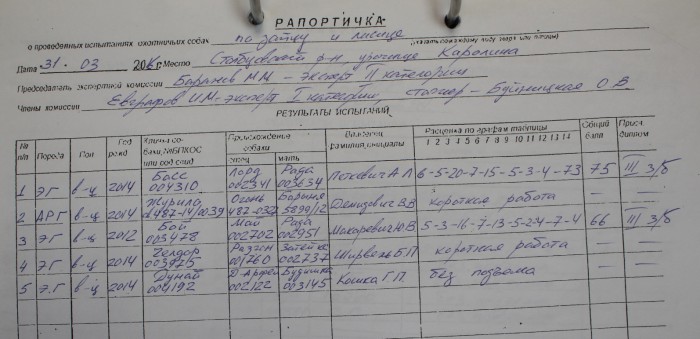 РАПОРТИЧКА
о проведенных испытаниях охотничьих собак по зайцу и лисице
(указать по какому виду зверя или птицы)
Дата 31.03 20 г. Место Столбцовский р-н, урочище Каролина
Председатель экспертной комиссии Баранов М.М - эксперт II категории
Члены комиссии - эксперт I категории, стажер - О.В.
РЕЗУЛЬТАТЫ ИСПЫТАНИЙ
№ п/п Порода Пол Год рожд Кличка собаки, №БПКОС или свид Происхождение собаки отец мать Владелец фамилия, инициалы Расценка по графам таблицы 1 2 3 4 5 6 7 8 9 10 11 12 13 14 Общий балл Присв. диплом
1 Э.Г в-ц 2014 Босс 004310 Лорд 002341 Рада 003634 Поткевич А Л 6-5-20-7-15-5-3-4-73 75 III з/б
2 АРГ в-ц 2014 Журило 487-14/0039 Огонь 487-032 Барыня 5899/12 Денизович В.В короткая работа — —
3 Э Г в-ц 2012 Бой 003478 Май 002702 Рада 002951 Макаревич Ю.В 5-3-16-7-13-5-2-4-7-4 66 III з/б
4 Э Г в-ц 2014 003925 Разгон 001760 002737 Б.П короткая работа — —
5 Э.Г в-ц 2014 Дунай 004192 002122 003145 Кошка Г.П. без подъема — —